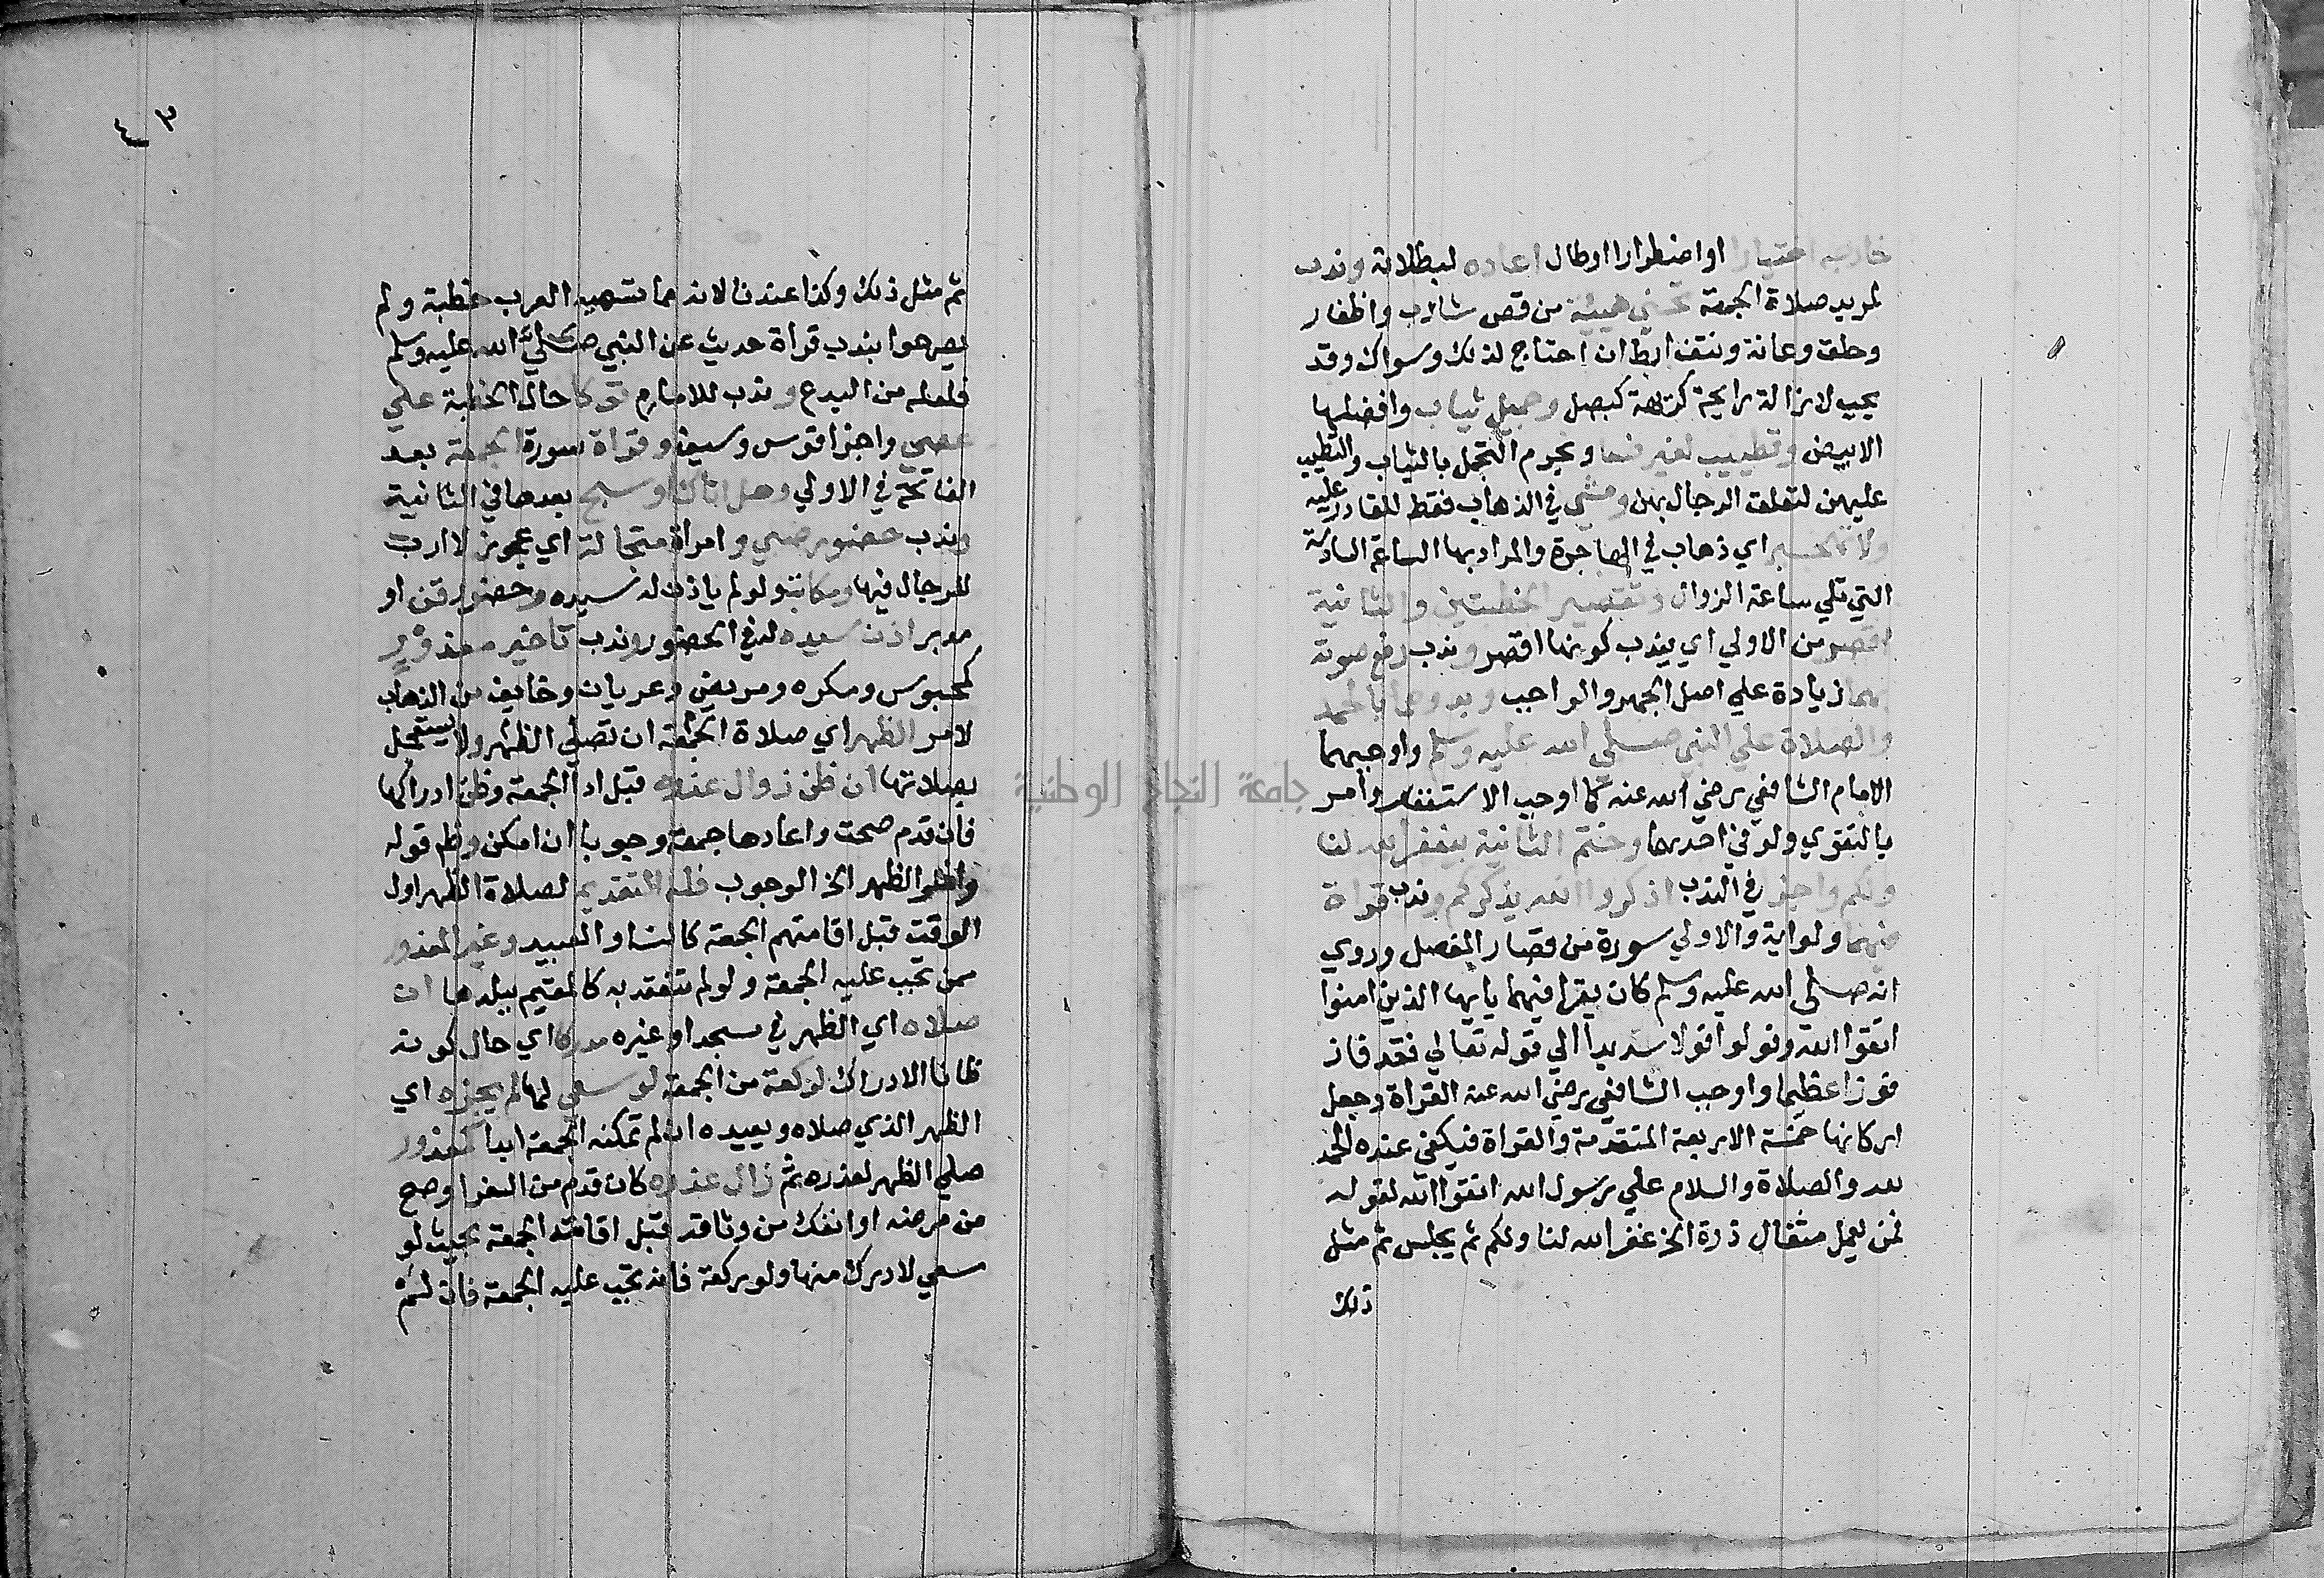 خارجه اختيارا او اضطرارا او طال اعاده لبطلانه وندب
لمريد صلاة الجمعة تحسين هيئة من قص شارب واظفار
وحلق وعانة ونتف ابط ان احتاج لذلك وسواك وقد
يجب لازالة رايحة كريهة كبصل وجميل ثياب وافضلها
الابيض وتطييب لغير نسا ويحرم التجمل بالثياب والتطيب
عليهن لتعلق الرجال بهن ومشي في الذهاب فقط للقادر عليه
اي ذهاب في الهاجرة والمراد بها الساعة السادسة
التي تلي ساعة الزوال وتقصير الخطبتين والثانية
اقصر من الاولي اي يندب كونها اقصر وندب رفع صوته
بهما زيادة علي اصل الجهر والواجب وبدوهما بالحمد
والصلاة علي النبي صلي الله عليه وسلم واوجبهما
الامام الشافعي رضي الله عنه كما اوجب الاستغفار وامر
بالتقوي ولو في احديهما وختم الثانية بيغفر الله لنا
ولكم واجزا في الندب اذكروا الله يذكركم وندب قراة
فيهما ولو اية والاولي سورة من قصار المفصل وروي
انه صلي الله عليه وسلم كان يقرا فيهما يايها الذين امنوا
اتقوا الله وقولوا قولا سديدا الي قوله تعالي فقد فاز
فوزا عظيما واوجب الشافعي رضي الله عنه القراة وجعل
اركانها خمسة الاربعة المتقدمة والقراة فيكفي عنده الحمد
لله والصلاة والسلام علي رسول الله اتقوا الله لقوله
فمن يعمل مثقال ذرة الخ غفر الله لنا ولكم ثم يجلس ثم مثل
ذلك
٤٣
ثم مثل ذلك وكذا عندنا لانه مما تسميه العرب خطبة ولم
يصرحوا بندب قراة حديث عن النبي صلي الله عليه وسلم
فلعله من البدع وندب للامام توكا حال الخطبة علي
عصي واجزا قوس وسيف وقراة سورة الجمعة بعد
الفاتحة في الاولي وهل اتاك او سبح بعدها في الثانية
وندب حضور صبي وامراة متجالة اي عجوز لا ارب
للرجال فيها ومكاتب ولو لم ياذن له سيده وحضور قن او
مدبر اذن سيده له في الحضور وندب تاخير معذور
كمحبوس ومكره ومريض وعريان وخايف من الذهاب
لامر الظهر اي صلاة الجمعة ان تصلي الظهر ولا يستعجل
بصلاتها ان ظن زوال عذره قبل ادا الجمعة وظن ادراكها
فان قدم صحت واعادها جمعة وجوبا ان امكن وظم قوله
الظهر الخ الوجوب فله التقديم لصلاة الظهر اول
الوقت قبل اقامتهم الجمعة كالنسا والعبيد وغير المعذور
ممن تجب عليه الجمعة ولو لم تنعقد به كالمقيم ببلدها ان
صلاه اي الظهر في مسجد او غيره مدركا اي حال كونه
ظانا الادراك لركعة من الجمعة لو سعي لها لم يجزه اي
الظهر الذي صلاه ويعيده ان لم تمكنه الجمعة ابدا كمعذور
صلي الظهر لعذره ثم زال عذره كان قدم من السفر او صح
من مرضه او انفك من وثاقه قبل اقامة الجمعة بحيث لو
سعي لادرك منها ولو ركعة فانه تجب عليه الجمعة فان لم
جامعة النجاح الوطنية